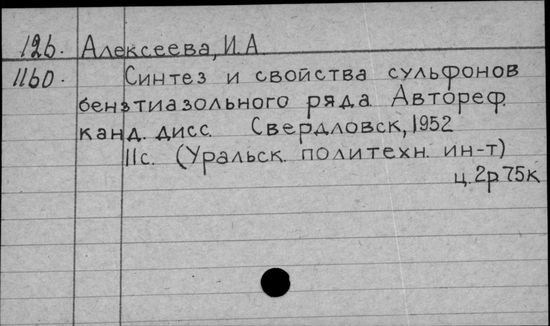 126. Алексеева, И.А.
1160. Синтез и свойства сульфонов
бензтиазольного ряда. Автореф.
канд. дисс. Свердловск, 1952
11с. (Уральск. политехн. ин-т)
ц.2р75к